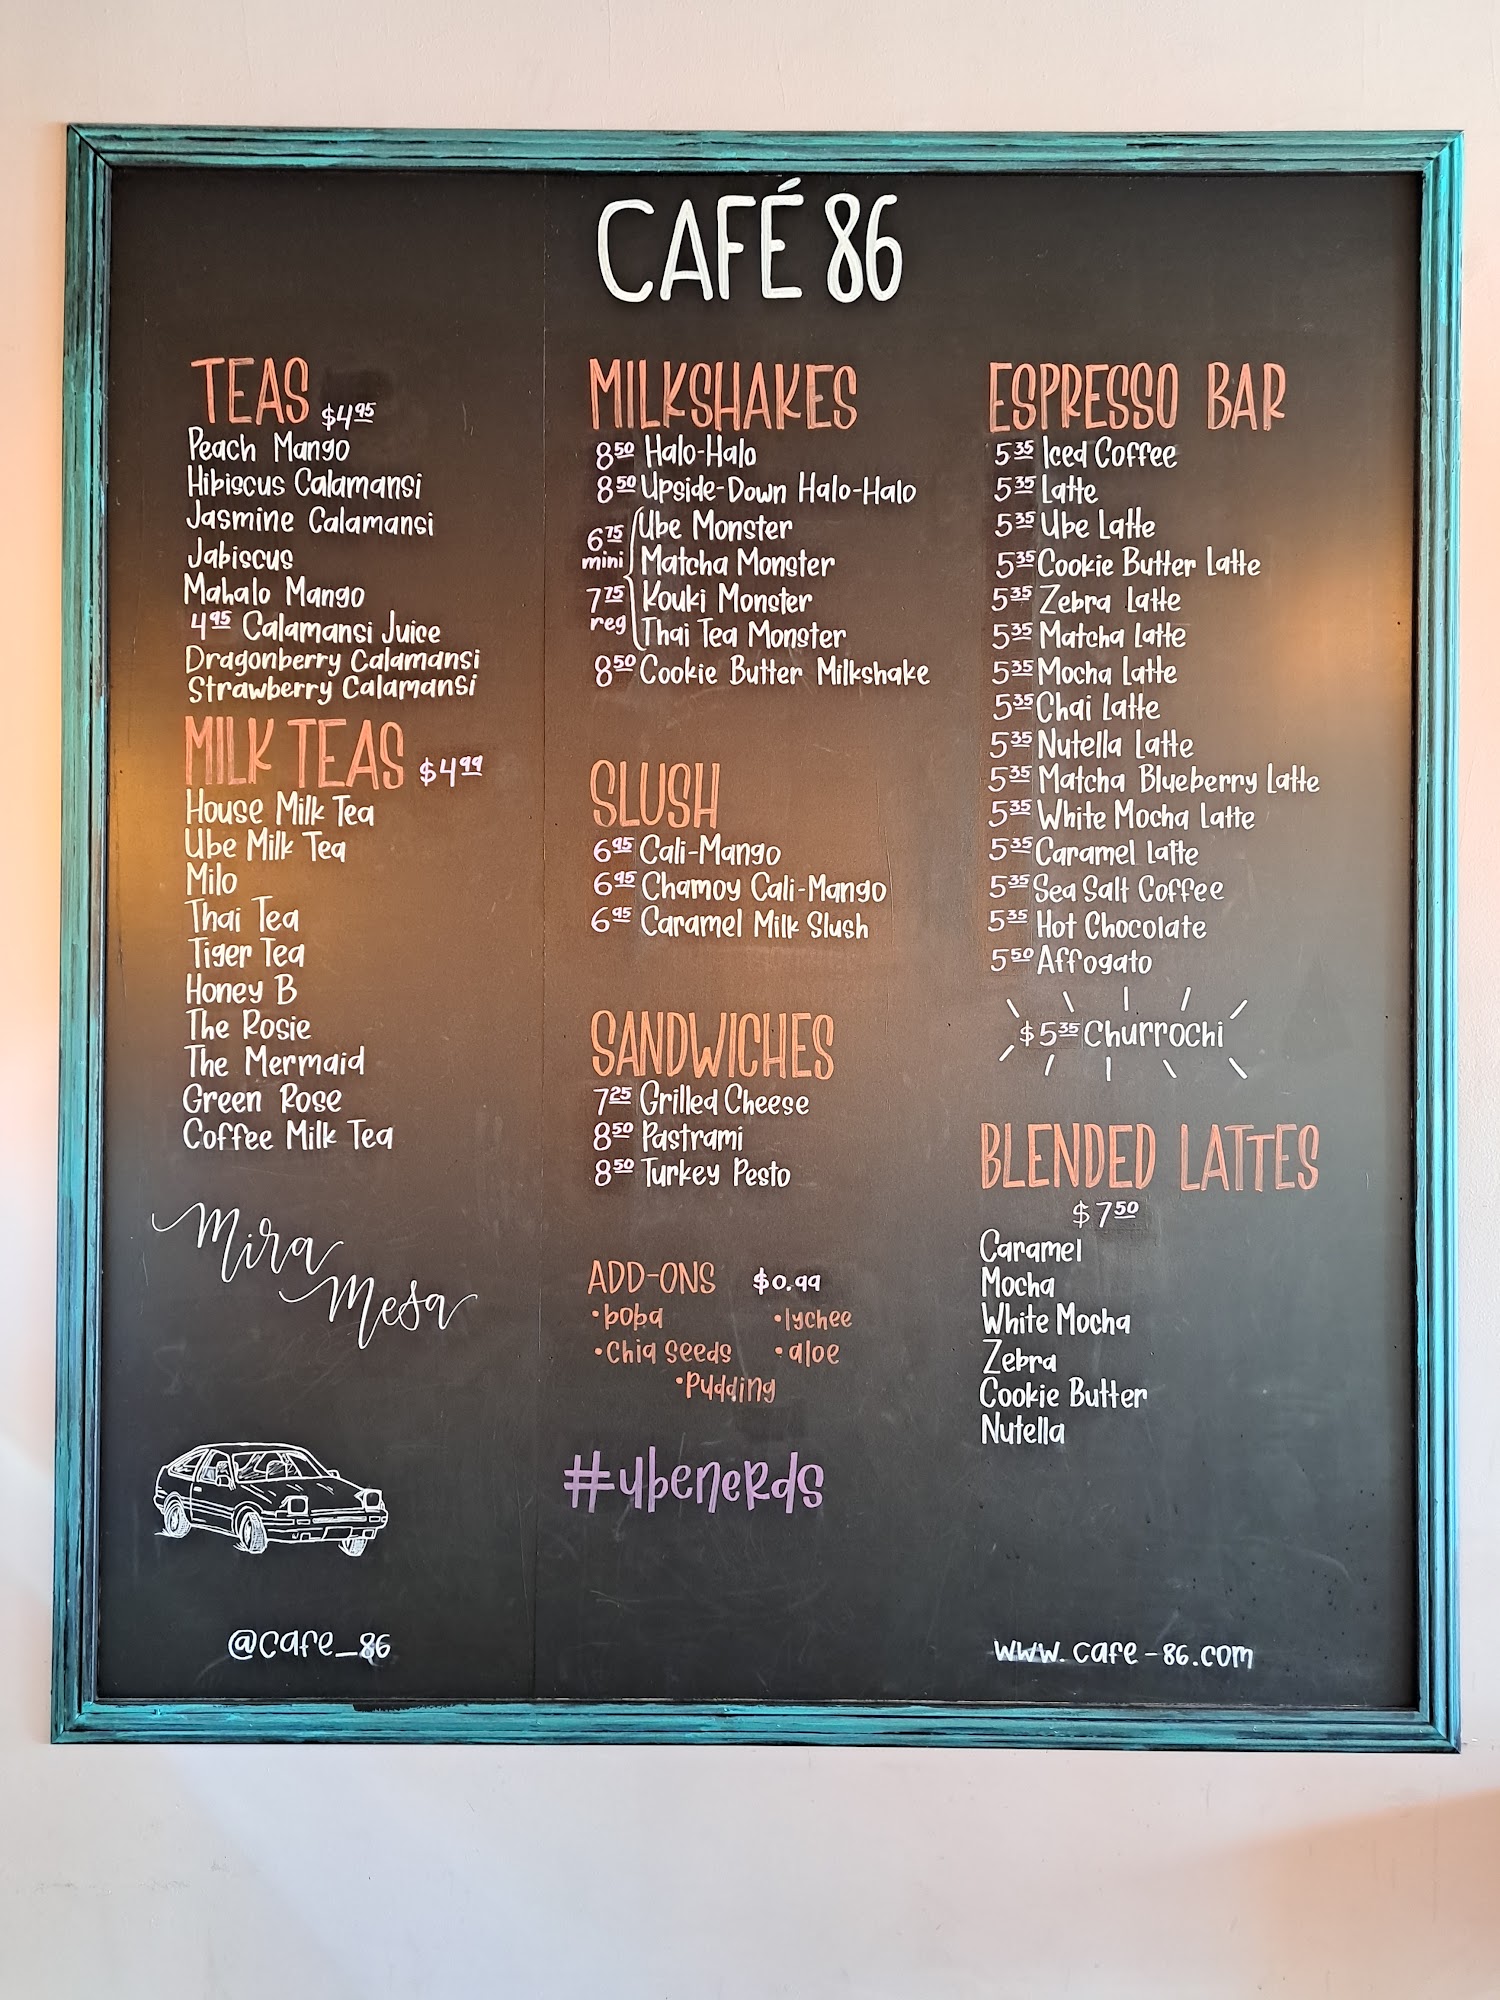 CAFÉ 86
TEAS $4.95
Peach Mango
Hibiscus Calamansi
Jasmine Calamansi
Jabiscus
Mahalo Mango
4.95 Calamansi Juice
Dragonberry Calamansi
Strawberry Calamansi
MILK TEAS $4.99
House Milk Tea
Ube Milk Tea
Milo
Thai Tea
Tiger Tea
Honey B
The Rosie
The Mermaid
Green Rose
Coffee Milk Tea
Mira
Mesa
@cafe_86
MILKSHAKES
8.50 Halo-Halo
8.50 Upside-Down Halo-Halo
6.75 mini
7.75 reg
Ube Monster
Matcha Monster
Kouki Monster
Thai Tea Monster
8.50 Cookie Butter Milkshake
SLUSH
6.95 Cali-Mango
6.95 Chamoy Cali-Mango
6.95 Caramel Milk Slush
SANDWICHES
7.25 Grilled Cheese
8.50 Pastrami
8.50 Turkey Pesto
ADD-ONS $0.99
•boba •lychee
•Chia Seeds •aloe
•Pudding
#ubenerds
ESPRESSO BAR
5.35 Iced Coffee
5.35 Latte
5.35 Ube Latte
5.35 Cookie Butter Latte
5.35 Zebra Latte
5.35 Matcha Latte
5.35 Mocha Latte
5.35 Chai Latte
5.35 Nutella Latte
5.35 Matcha Blueberry Latte
5.35 White Mocha Latte
5.35 Caramel Latte
5.35 Sea Salt Coffee
5.35 Hot Chocolate
5.50 Affogato
$5.35 Churrochi
BLENDED LATTES
$7.50
Caramel
Mocha
White Mocha
Zebra
Cookie Butter
Nutella
www.cafe-86.com